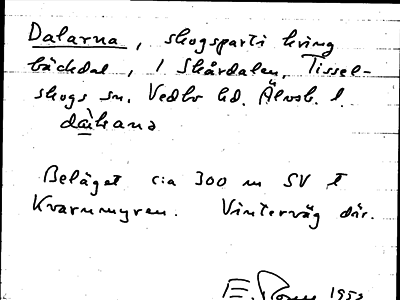 Dalarna, skogsparti kring
bäckdal, i Skårdalen, Tissel-
skogs sn, Vedbo hd, Älvsb. l.
Beläget c:a 300 m SV f
Kvarnmyren. Vinterväg där.
E. 1953